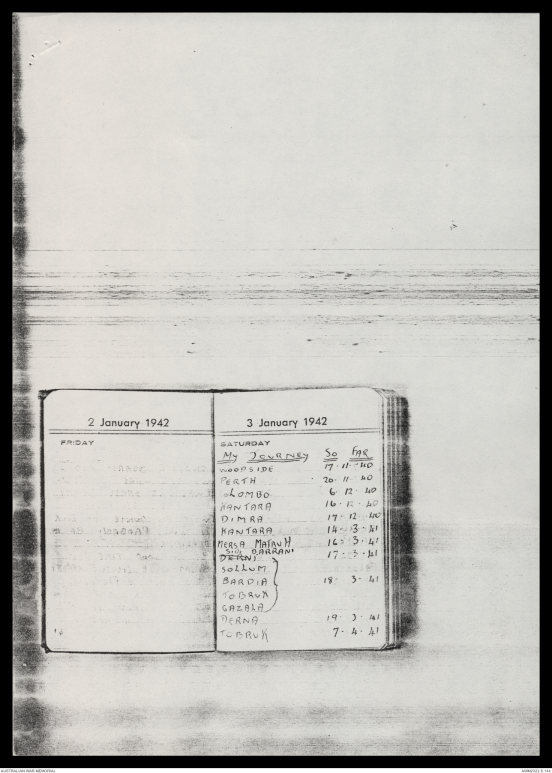 2 January 1942
FRIDAY
3 January 1942
SATURDAY
My JOURNEY So FAR
WOODSIDE 17·11·40
PERTH 20·11·40
OLOMBO 6·12·40
KANTARA 16·12·40
DIMRA 17·12·40
KANTARA 14·3·41
MERSA MATRUH 16·3·41
SIDI BARRANI 17·3·41
DERNI
SOLLUM
BARDIA 18·3·41
TOBRUK
GAZALA
DERNA 19·3·41
TOBRUK 7·4·41
AUSTRALIAN WAR MEMORIAL